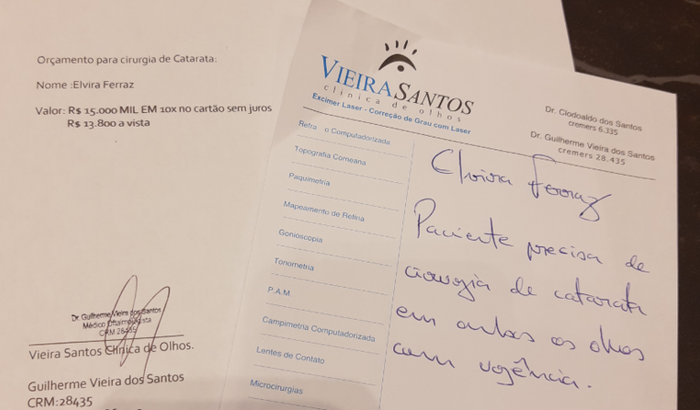 Orçamento para cirurgia de Catarata:
Nome :Elvira Ferraz
Valor: R$ 15.000 MIL EM 10x no cartão sem juros
R$ 13.800 a vista
Dr. Guilherme Vieira dos Santos
Médico Oftalmologista
CRM 28435
Vieira Santos Clínica de Olhos.
Guilherme Vieira dos Santos
CRM:28435
VIEIRA SANTOS
clínica de olhos
Excimer Laser - Correção de Grau com Laser
Dr. Clodoaldo dos Santos
cremers 6.335
Dr. Guilherme Vieira dos Santos
cremers 28.435
Refra o Computadorizada
Topografia Corneana
Paquimetria
Mapeamento de Retina
Gonioscopia
Tonometria
P.A.M
Campimetria Computadorizada
Lentes de Contato
Microcirurgias
Elvira Ferraz
Paciente precisa de
cirurgia de catarata
em ambos os olhos
com urgência.